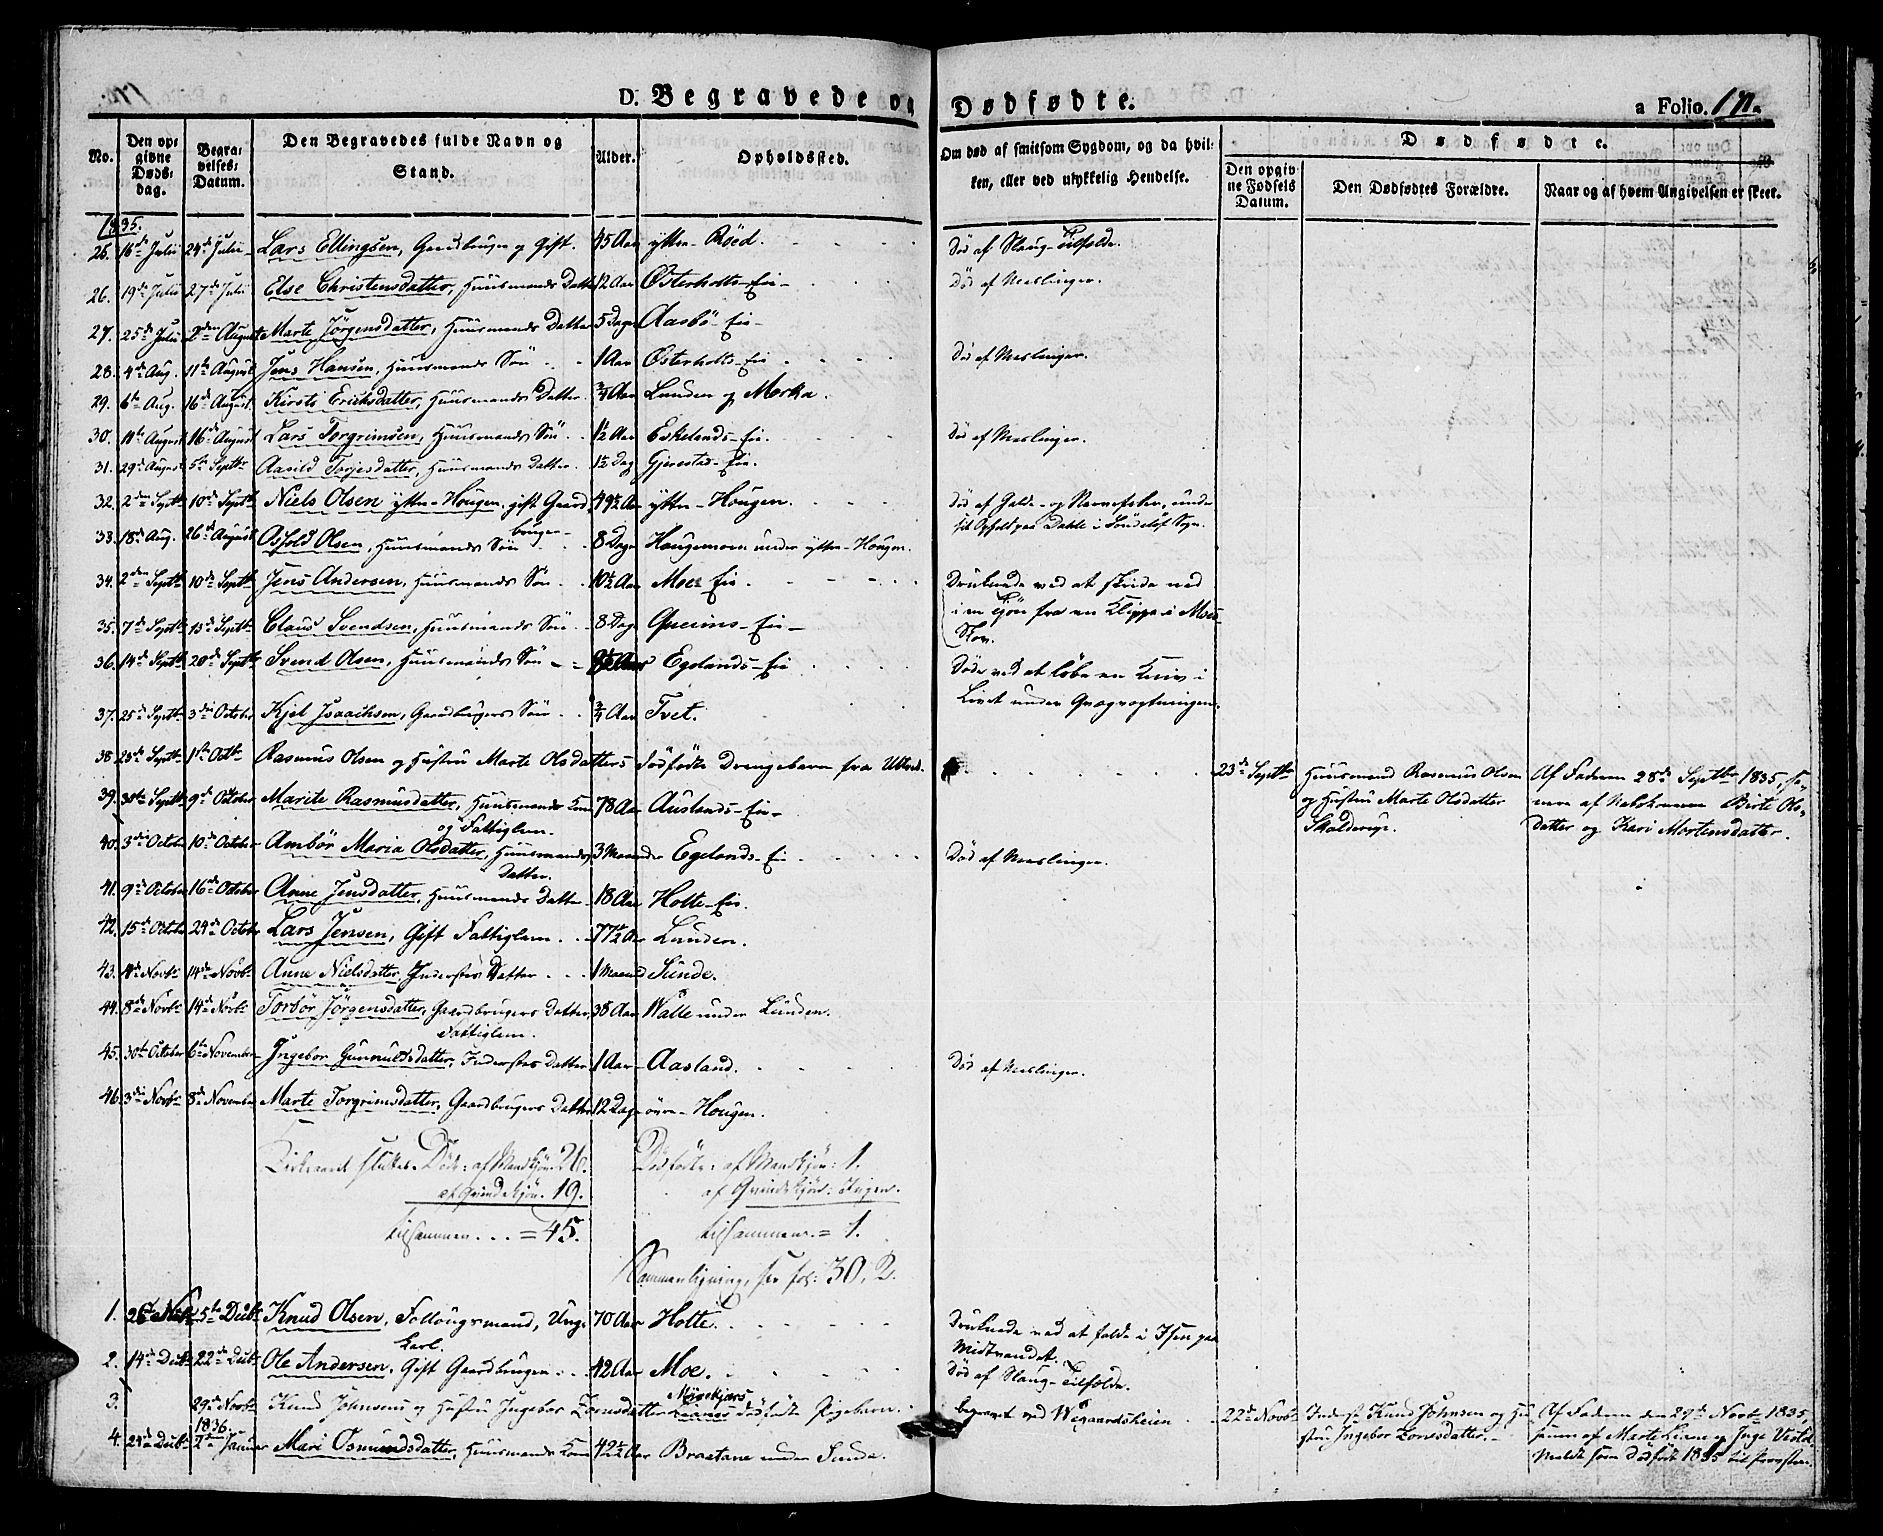 D. Begravede og Dødfødte.
a Folio. 171.
No.
Den opgivne Dødsdag.
Begravelses-Datum.
Den Begravedes fulde Navn og Stand.
Alder.
Opholdssted.
Om død af smitsom Sygdom, og da hvilken, eller ved ulykkelig Hendelse.
Dødfødte.
Den opgivne Fødsels Datum.
Den Dødfødtes Forældre.
Naar og af hvem Angivelsen er skeet.
1835.
26. 16de Julii 24de Julii Lars Ellingsen, Gaardbruger og gift. 45 Aar yttre Röed. Död af Slag-Tilfælde.
26. 19de Julii 27de Julii Else Christensdatter, Huusmands Datter 12 Aar Österholts-Eie Död af Meslinger.
27. 25de Julii 2den August Marte Jörgensdatter, Huusmands Datter 5 Dage Aasbö-Eie
28. 4de Aug. 11te August Jens Hansen, Huusmands Sön 1 Aar Österholts-Eie Död af Meslinger.
29. 6te Aug. 16de August Kirsti Eriksdatter, Huusmands Datter 3/4 Aar Lunden og Morka.
30. 11te August 16de August Lars Torgrimsen, Huusmands Sön 1½ Aar Eskelands-Eie. Död af Meslinger.
31. 29de August 5te Septbr Aasild Torjesdatter, Huusmands Datter. 1½ Dag Gjerestad-Eie.
32. 2den Septbr 10de Septbr Niels Olsen yttre-Hougen, gift Gaardbruger 49½ Aar yttre-Hougen. Död af Galde- og Nervefeber, under sit Ophold paa Dahle i Söndelöf Sogn.
33. 18de Aug. 26de August Osfold Olsen, Huusmands Sön 8 Dage Hougemoen under yttre-Hougen.
34. 2den Septbr 10de Septbr Jens Andersen, Huusmands Sön 10½ Aar Moes Eie. Druknede ved at skride ned i en Tjön fra en Klippe i Moes Skov.
35. 7de Septbr 13de Septbr Claus Svendsen, Huusmands Sön 8 Dage Qveims-Eie
36. 14de Septbr 20de Septbr Svend Olsen, Huusmands Sön Egelands-Eie Döde ved at löbe en Kniv i Livet under Qvægvogtningen.
37. 25de Septbr 3die October Kjel Isaaksen, Gaardbrugers Sön 3/4 Aar Tvet.
38. 23de Septbr 1ste Octbr Rasmus Olsen og Hustru Marte Olsdatters dödfödte Drengebarn fra 23de Septbr Huusmand Rasmus Olsen og Hustru Marte Olsdatter Af Faderen 28de Septbr 1835, af Nabokonerne Birte Olsdatter og Kari Mortensdatter.
39. 30te Septbr 9de October Marite Rasmusdatter, Huusmands Kone og Fattiglem. 78 Aar Auslands-Eie
40. 3die October 10de October Ambör Maria Olsdatter, Huusmands Datter. 3 Maaneder Egelands-Eie Död af Meslinger.
41. 9de October 16de October Anne Jensdatter, Huusmands Datter 18 Aar Holte-Eie.
42. 15de October 24de October Lars Jensen, Gift Fattiglem. 77½ Aar Lunden.
43. 14de Novbr Anne Nielsdatter, Inderstes Datter 1 Maaned Sunde.
44. 8de Novbr 14de Novbr Torbör Jörgensdatter, Gaardbrugers Datter, Fattiglem. 38 Aar Walle under Lunden.
45. 30te October 6te November Ingebor Gunnulsdatter, Inderstes Datter 1 Aar Aasland. Död af Meslinger.
46. 3die Novbr 8de November Marte Torgrimsdatter, Gaardbrugers Datter 12 Dage övre-Hougen.
Kirkeaaret sluttes. Döde: af Mandkjön 26. Dödfödte: af Mandkjön: 1.
af Qvindekjön. 19. af Qvindekjön: Ingen.
tilsammen... = 45. tilsammen = 1.
Sammenligning, see fol: 30, 2.
1. 26de Novbr 5te Decbr Knud Olsen, Follougsmand, Ungkarl. 70 Aar Holte. Druknede ved at falde i Isen paa Midtvandet.
2. 14de Decbr 22de Decbr Ole Andersen, Gift Gaardbruger 42 Aar Moe. Död af Slag-Tilfælde.
3. 29de Novbr Knud Johnsens og Hustru Ingebor Zonesdatter dödfödte Pigebarn. begravet ved Wegaardsheien 22de Novbr Inderst Knud Johnsen og Hustru Ingebor Zonesdatter Af Faderen den 29de Novbr 1835,
1836
4. 24de Decbr 2den Januar Mari Osmundsdatter, Huusmands Kone 42½ Aar Braatane under Sunde.